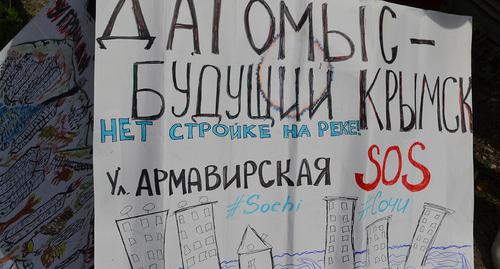 ДАГОМЫС –
БУДУЩИЙ КРЫМСК
НЕТ СТРОЙКЕ НА РЕКЕ!
Ул. АРМАВИРСКАЯ SOS
#Sochi #Сочи